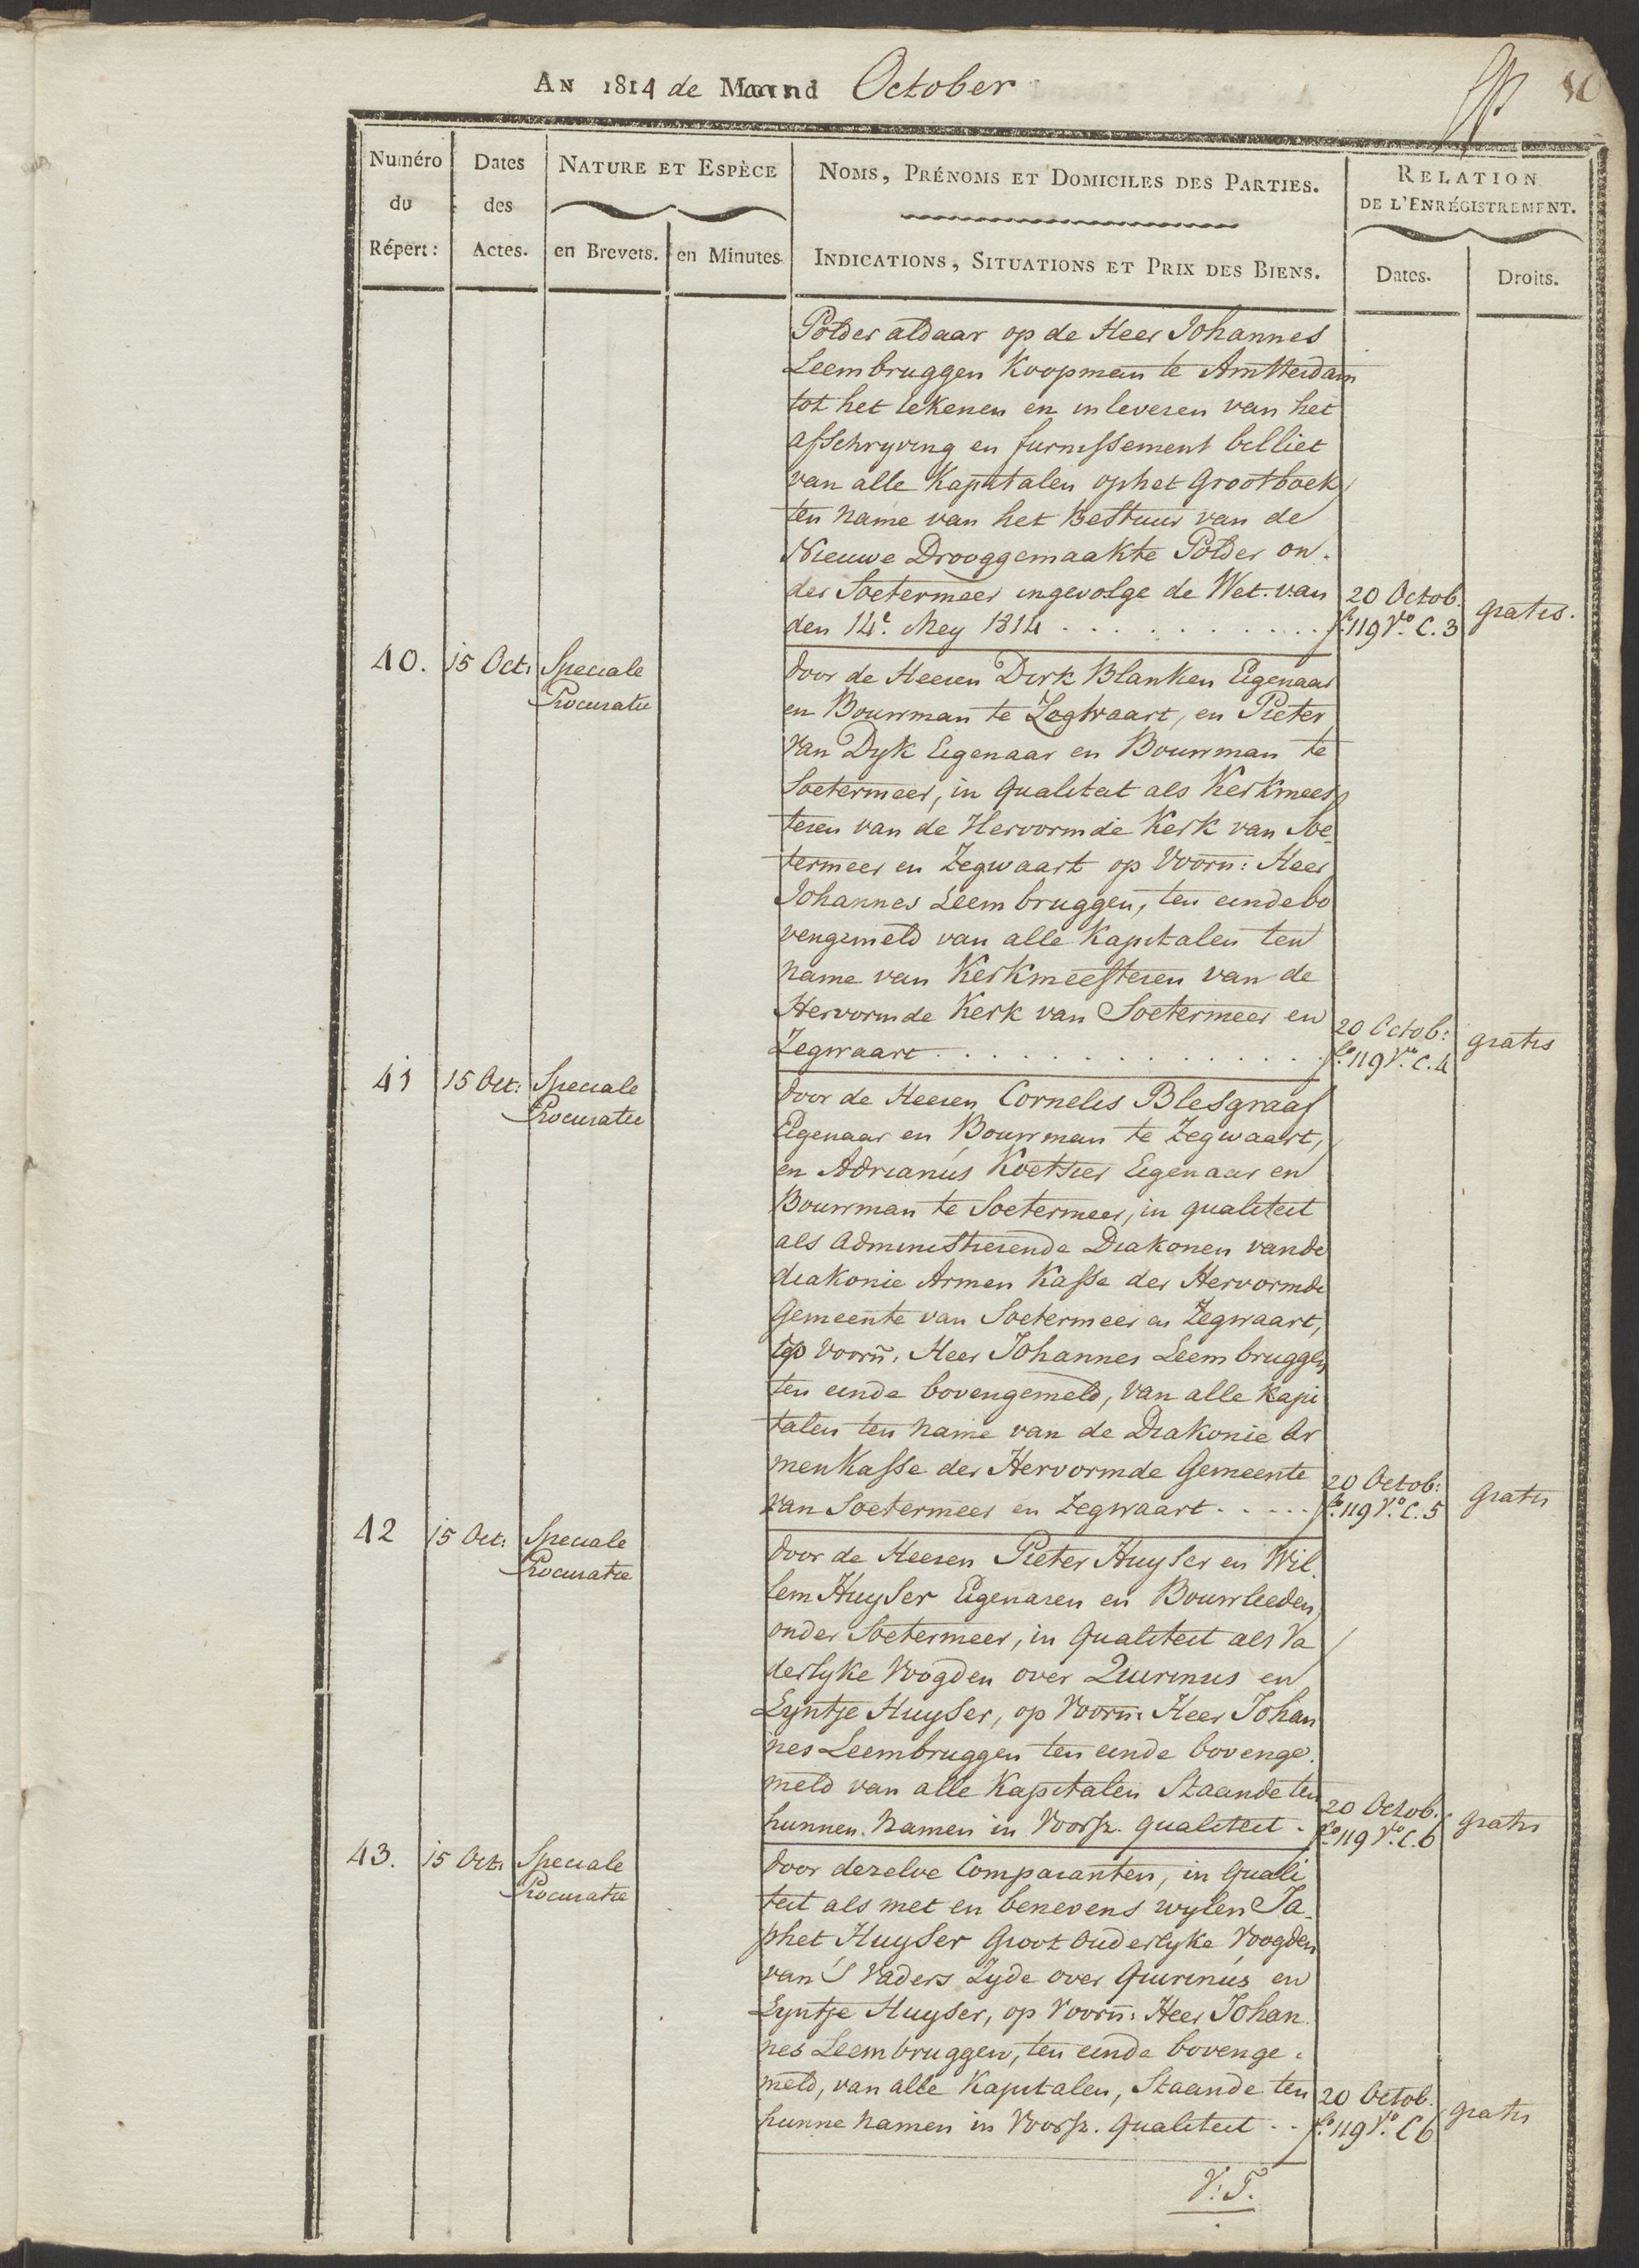 AN 1814 de Maand October
10
Numéro du Répert:
Dates des Actes.
NATURE ET ESPÈCE
en Brevets.
en Minutes
NOMS, PRÉNOMS ET DOMICILES DES PARTIES.
INDICATIONS, SITUATIONS ET PRIX DES BIENS.
RELATION
DE L'ENRÉGISTREMENT.
Dates.
Droits.
Polder aldaar op de Heer Johannes
Leembruggen Koopman te Amsterdam
tot het tekenen en inleveren van het
afschryving en furnissement billiet
van alle Kapitalen op het Grootboek
ten name van het Bestuur van de
Nieuwe Drooggemaakte Polder on-
der Soetermeer ingevolge de Wet van
den 14e Mey 1814 . . . . . . . . . .
20 Octob.
fo 119 Vo. C. 3
gratis.
40. 15 Oct: Speciale
Procuratie
door de Heeren Dirk Blanken Eigenaar
en Bouwman te Zegwaart, en Pieter
van Dyk Eigenaar en Bouwman te
Soetermeer, in qualiteit als Kerkmees
teren van de Hervormde Kerk van Soe
termeer en Zegwaart op Voorn: Heer
Johannes Leembruggen, ten einde bo
vengemeld van alle Kapitalen ten
name van Kerkmeesteren van de
Hervormde Kerk van Soetermeer en
Zegwaart . . . . . . . . . . . . .
20 Octob:
fo. 119 Vo. C. 4
gratis
41 15 Oct: Speciale
Procuratie
door de Heeren Cornelis Blesgraaf
Eigenaar en Bouwman te Zegwaart,
en Adrianus Koetsier Eigenaar en
Bouwman te Soetermeer, in qualiteit
als Administrerende Diakonen van de
diakonie Armen Kasse der Hervormde
Gemeente van Soetermeer en Zegwaart,
op voorn: Heer Johannes Leembruggen
ten einde bovengemeld, van alle Kapi
talen ten name van de Diakonie Ar
men Kasse der Hervormde Gemeente
van Soetermeer en Zegwaart . . . . .
20 Octob:
fo. 119 Vo. C. 5
gratis
42 15 Oct: Speciale
Procuratie
door de Heeren Pieter Huyser en Wil
lem Huyser Eigenaren en Bouwlieden
onder Soetermeer, in qualiteit als Va
derlyke Voogden over Quirinus en
Lyntje Huyser, op Voorn: Heer Johan
nes Leembruggen ten einde bovenge
meld van alle Kapitalen Staande ten
hunnen Namen in Voorsz. qualiteit .
20 Octob.
fo 119 Vo. C. 6
gratis
43. 15 Oct: Speciale
Procuratie
door dezelve Comparanten, in quali
teit als met en benevens wylen Ja-
phet Huyser Groot Ouderlyke Voogden
van 's Vaders Zyde over Quirinus en
Lyntje Huyser, op Voorn: Heer Johan
nes Leembruggen, ten einde bovenge-
meld, van alle Kapitalen, Staande ten
hunne Namen in Voorsz. qualiteit . .
20 Octob.
fo. 119 Vo. C 6
gratis
V: T.